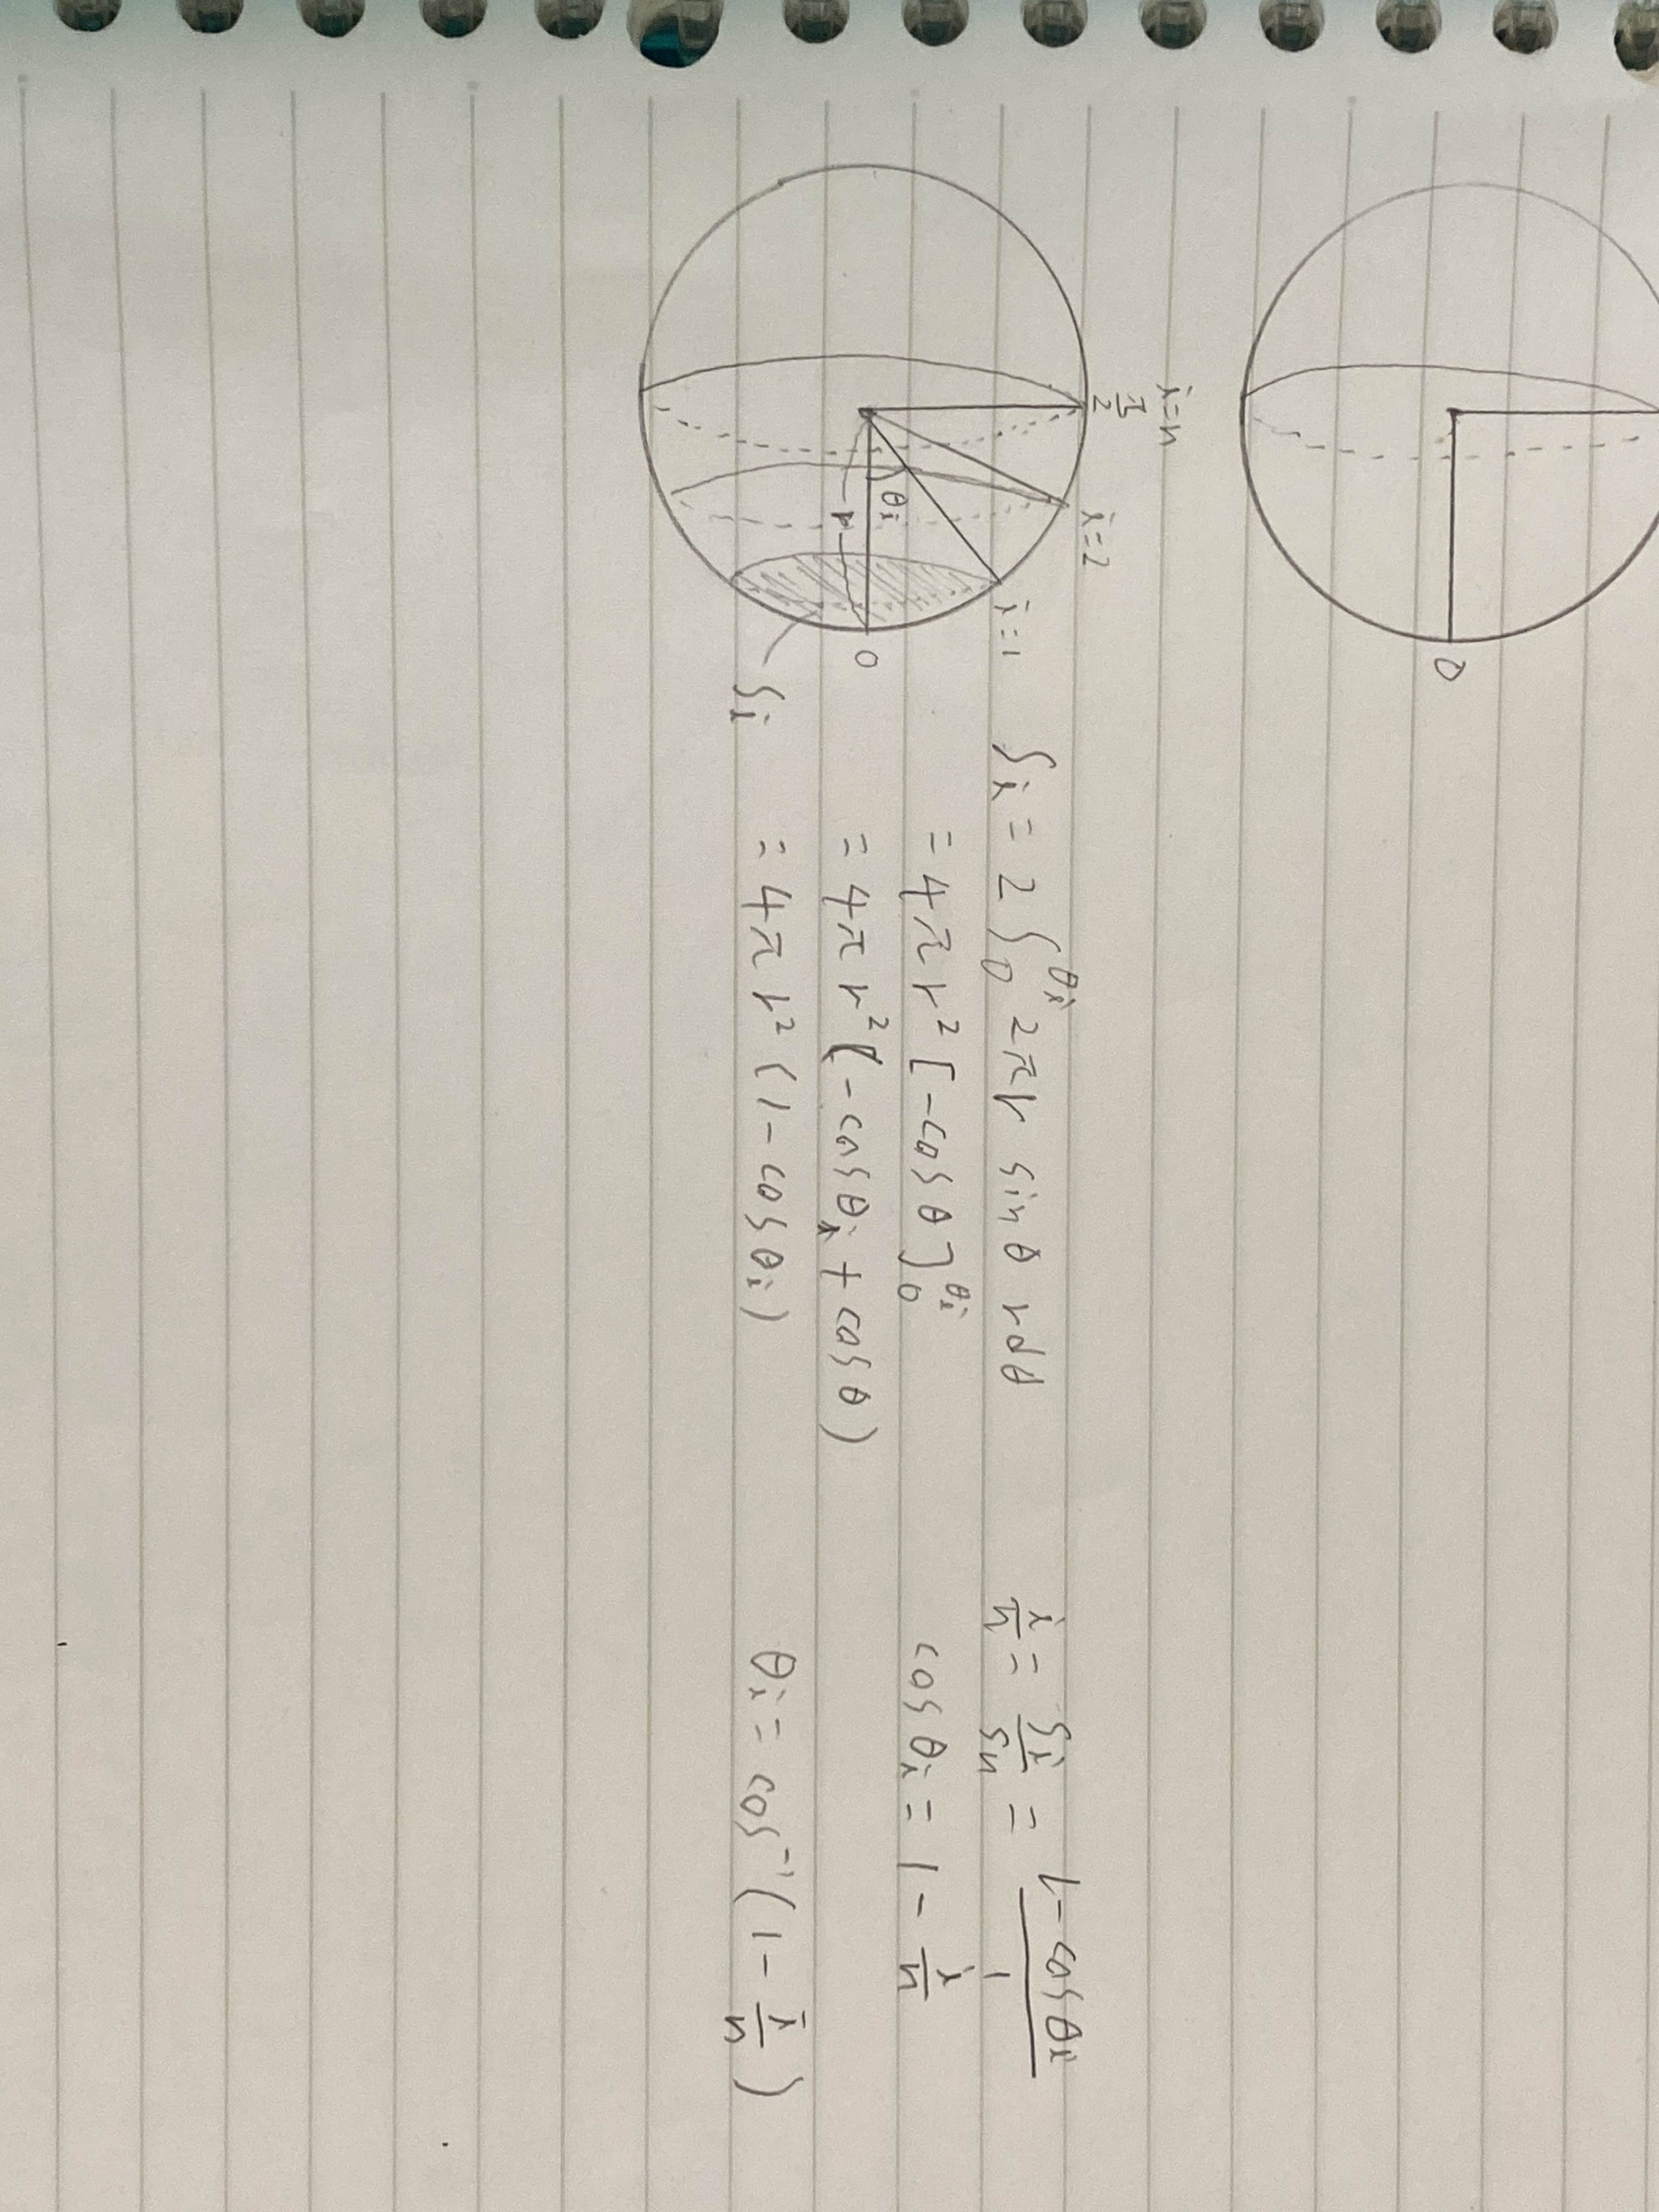 0
i=n
π/2
i=2
i=1
θi
r
0
Si
Si = 2∫₀^θi 2πr sinθ rdθ
= 4πr² [-cosθ]₀^θi
= 4πr² (-cosθi + cosθ)
= 4πr² (1-cosθi)
i/n = Si/Sn = (1-cosθi)/1
cosθi = 1 - i/n
θi = cos⁻¹(1 - i/n)